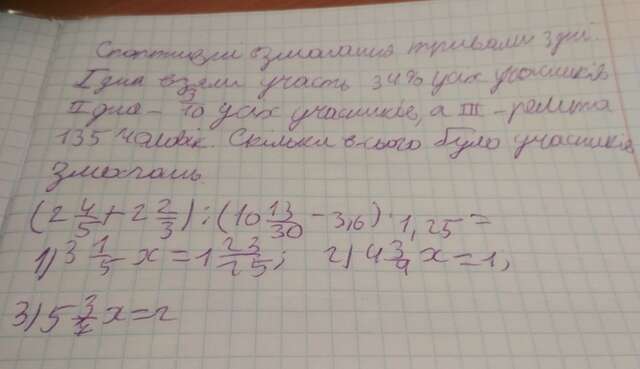 Спортивні змагання тривали 3 дні.
I дня взяли участь 34% усіх учасників
II дня - 3/10 усіх учасників, а III - решта
135 чоловік. Скільки всього було учасників
змагань.
(2 4/5 + 2 2/3) : (10 13/30 - 3,6) · 1,25 =
1) 3 1/5 x = 1 23/25; 2) 4 3/4 x = 1,
3) 5 x = 2